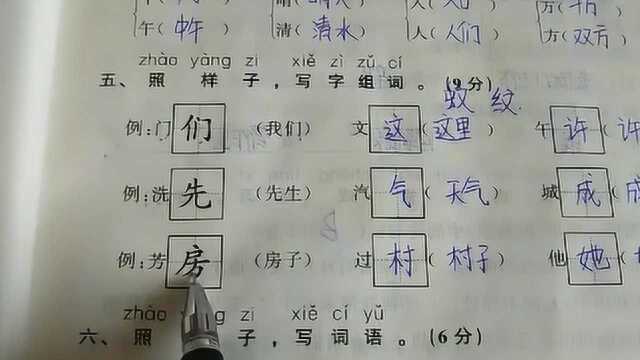 午（中午 清（清水 人（人们 方（双方
zhào yàng zi xiě zì zǔ cí
五、照 样 子，写 字 组 词。（9分）
蚊 纹
例：门 们 （我们） 文 这（这里 午 许（许
例：洗 先 （先生） 汽 气（天气 城 成（成
例：芳 房 （房子） 过 村（村子 他 她
zhào yàng zi xiě cí yǔ
六、照 子，写 词 语。（6分）